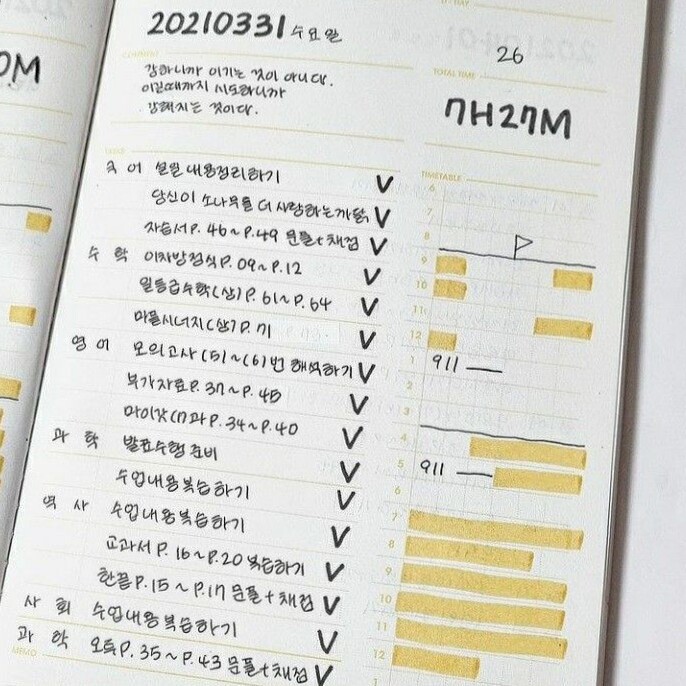 D-DAY
20210331 수요일
26
COMMENT
강하니까 이기는 것이 아니다.
이길때까지 시도하니까
강해지는 것이다.
TOTAL TIME
7H27M
0M
TASKS
TIMETABLE
국어 설월 내용정리하기 V
당신이 소나무를 더 사랑하는까닭 V
자습서 P. 46 ~ P. 49 문풀+채점 V
수학 이차방정식 P. 09 ~ P. 12 V
일등급수학(상) P. 61 ~ P. 64 V
마플시너지(상) P. 71 V
영어 모의고사 (5) ~ (6)번 해석하기 V
부가자료 P. 37 ~ P. 45 V
P. 34 ~ P. 40 V
과학 발표수행 준비 V
수업내용복습하기 V
역사 수업내용복습하기 V
교과서 P. 16 ~ P. 20 복습하기 V
한끝 P. 15 ~ P. 17 문풀+채점 V
사회 수업내용복습하기 V
과학 오투 P. 35 ~ P. 43 문풀+채점 V
MEMO
6
7
8
9
10
11
12
1 911
2
3
4
5 911
6
7
8
9
10
11
12
1